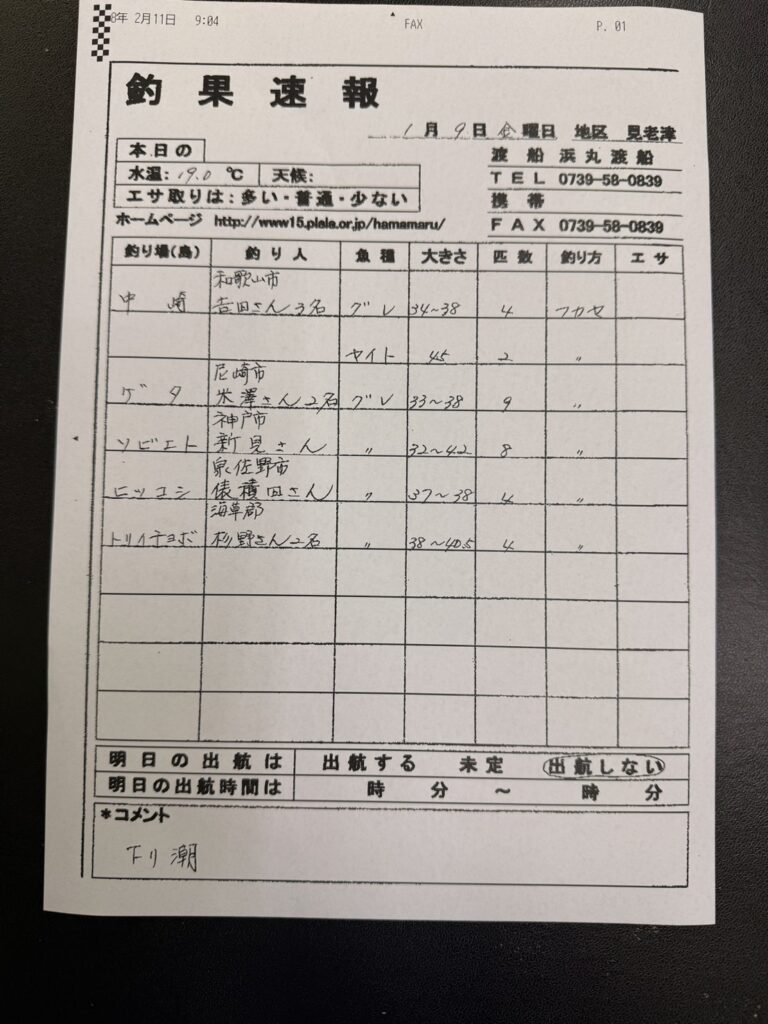 8年 2月11日 9:04 FAX P. 01
釣果速報
1月9日金曜日 地区 見老津
本日の
水温:19.0℃ 天候:
エサ取りは:多い・普通・少ない
ホームページ http://www15.plala.or.jp/hamamaru/
渡船 浜丸渡船
TEL 0739-58-0839
携帯
FAX 0739-58-0839
釣り場(島) 釣り人 魚種 大きさ 匹数 釣り方 エサ
和歌山市
中崎 吉田さん3名 グレ 34~38 4 フカセ
ヤイト 45 2 〃
尼崎市
ゲタ 米澤さん2名 グレ 33~38 9 〃
神戸市
ソビエト 新見さん 〃 32~42 8 〃
泉佐野市
ヒッコシ 俵積田さん 〃 37~38 4 〃
海草郡
トリイチョボ 杉野さん2名 〃 38~40.5 4 〃
明日の出航は 出航する 未定 出航しない
明日の出航時間は 時 分 ~ 時 分
*コメント
下り潮